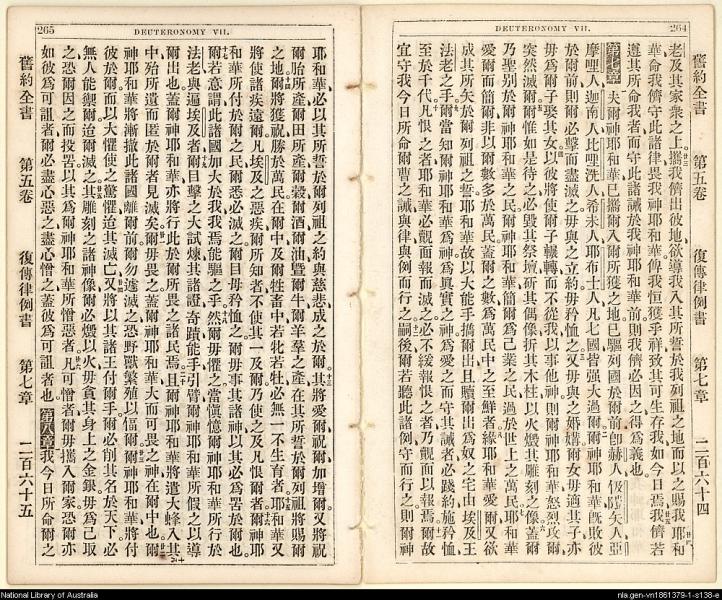 264
DEUTERONOMY VII.
舊約全書 第五卷 復傳律例書 第七章 二百六十四
老及其家衆之上攜我儕出彼地欲導我入其所誓於我列祖之地而以之賜我耶和
華命我儕守此諸律畏我神耶和華俾我恒獲乎祥致其可生存我如今日焉我儕若
遵其所命我者而守此諸誡於我神耶和華前則我儕必因之得爲義也
第七章 夫爾神耶和華已攜爾入爾所獲之地已驅列國於爾前卽赫人
摩哩人迦南人比哩洗人希未人耶布士人凡七國皆强大過爾爾神耶和華旣敗彼
於爾前則爾必擊而盡滅之毋與之立約毋矜恤之又毋與之婚媾爾女毋適其子亦
毋爲爾子娶其女以彼將使爾子輾轉而不從我以事他神則爾神耶和華怒烈攻爾
突然滅爾爾惟如是待之必毀其祭壇斫其偶像折其木柱以火燬其雕刻之像蓋爾
乃聖別於爾神耶和華之民爾神耶和華簡爾爲己業之民過於世上之萬民耶和華
愛爾而簡爾非以爾數多於萬民蓋爾之數爲萬民中之至鮮者緣耶和華愛爾又欲
成其所矢於爾列祖之誓耶和華故以大能手攜爾出且贖爾出爲奴之宅由埃及王
法老之手爾當知爾神耶和華爲神爲眞實之神爲愛之而守其誡者必踐約施矜恤
至於千代凡恨之者耶和華必覿面報而滅之必不緩報恨之者乃覿面以報焉爾故
宜守我今日所命爾曹之誡與律與例而行之嗣後爾若聽此諸例守而行之則爾神
265
DEUTERONOMY VII.
耶和華必以其所誓於爾列祖之約與慈悲成之於爾其將愛爾祝爾加增爾又將祝
爾胎所產爾田所產爾穀爾酒爾油曁爾牛爾羊羣之產在其所誓於爾列祖將賜爾
之地爾將獲祝勝於萬民在爾中及爾牲畜中若牝若牡必無一不生育者耶和華又
將使諸疾遠爾凡埃及之惡疾爾所知者不使其一及爾乃使之及凡恨爾者爾神耶
和華所付於爾之民爾悉必滅之爾目毋矜恤之爾毋事其諸神以其必爲苦於爾也
爾若意謂此諸國加大於我我焉能驅之乎然爾毋懼之當憶爾神耶和華所行於
法老與遍埃及者爾目擊之大試煉其諸證奇蹟能手引臂爾神耶和華所假之以導
爾出也蓋爾神耶和華亦將行此於爾所畏之諸民焉且爾神耶和華將遣大蜂入其
中殆所遺而匿於爾者見滅矣爾毋畏之蓋爾神耶和華大而可畏之神在爾中也爾
神耶和華將漸撤此諸國離爾前爾勿遽滅之恐野獸繁殖以偪爾爾神耶和華將付
彼於爾而以大懼使之驚懼迨其滅亡又將以其諸王付爾手爾必削其名於天下必
無人能禦爾迨爾滅之其雕刻之諸神像爾必燬以火毋貪其身上之金銀毋爲己取
之恐爾因之而投罟以其爲爾神耶和華所憎惡者凡可憎者爾毋攜入爾家恐爾亦
如彼爲可詛者爾必盡心惡之盡心憎之蓋彼爲可詛者也 第八章 我今日所命爾之
舊約全書 第五卷 復傳律例書 第七章 二百六十五
National Library of Australia
nla.gen-vn1861379-1-s138-e